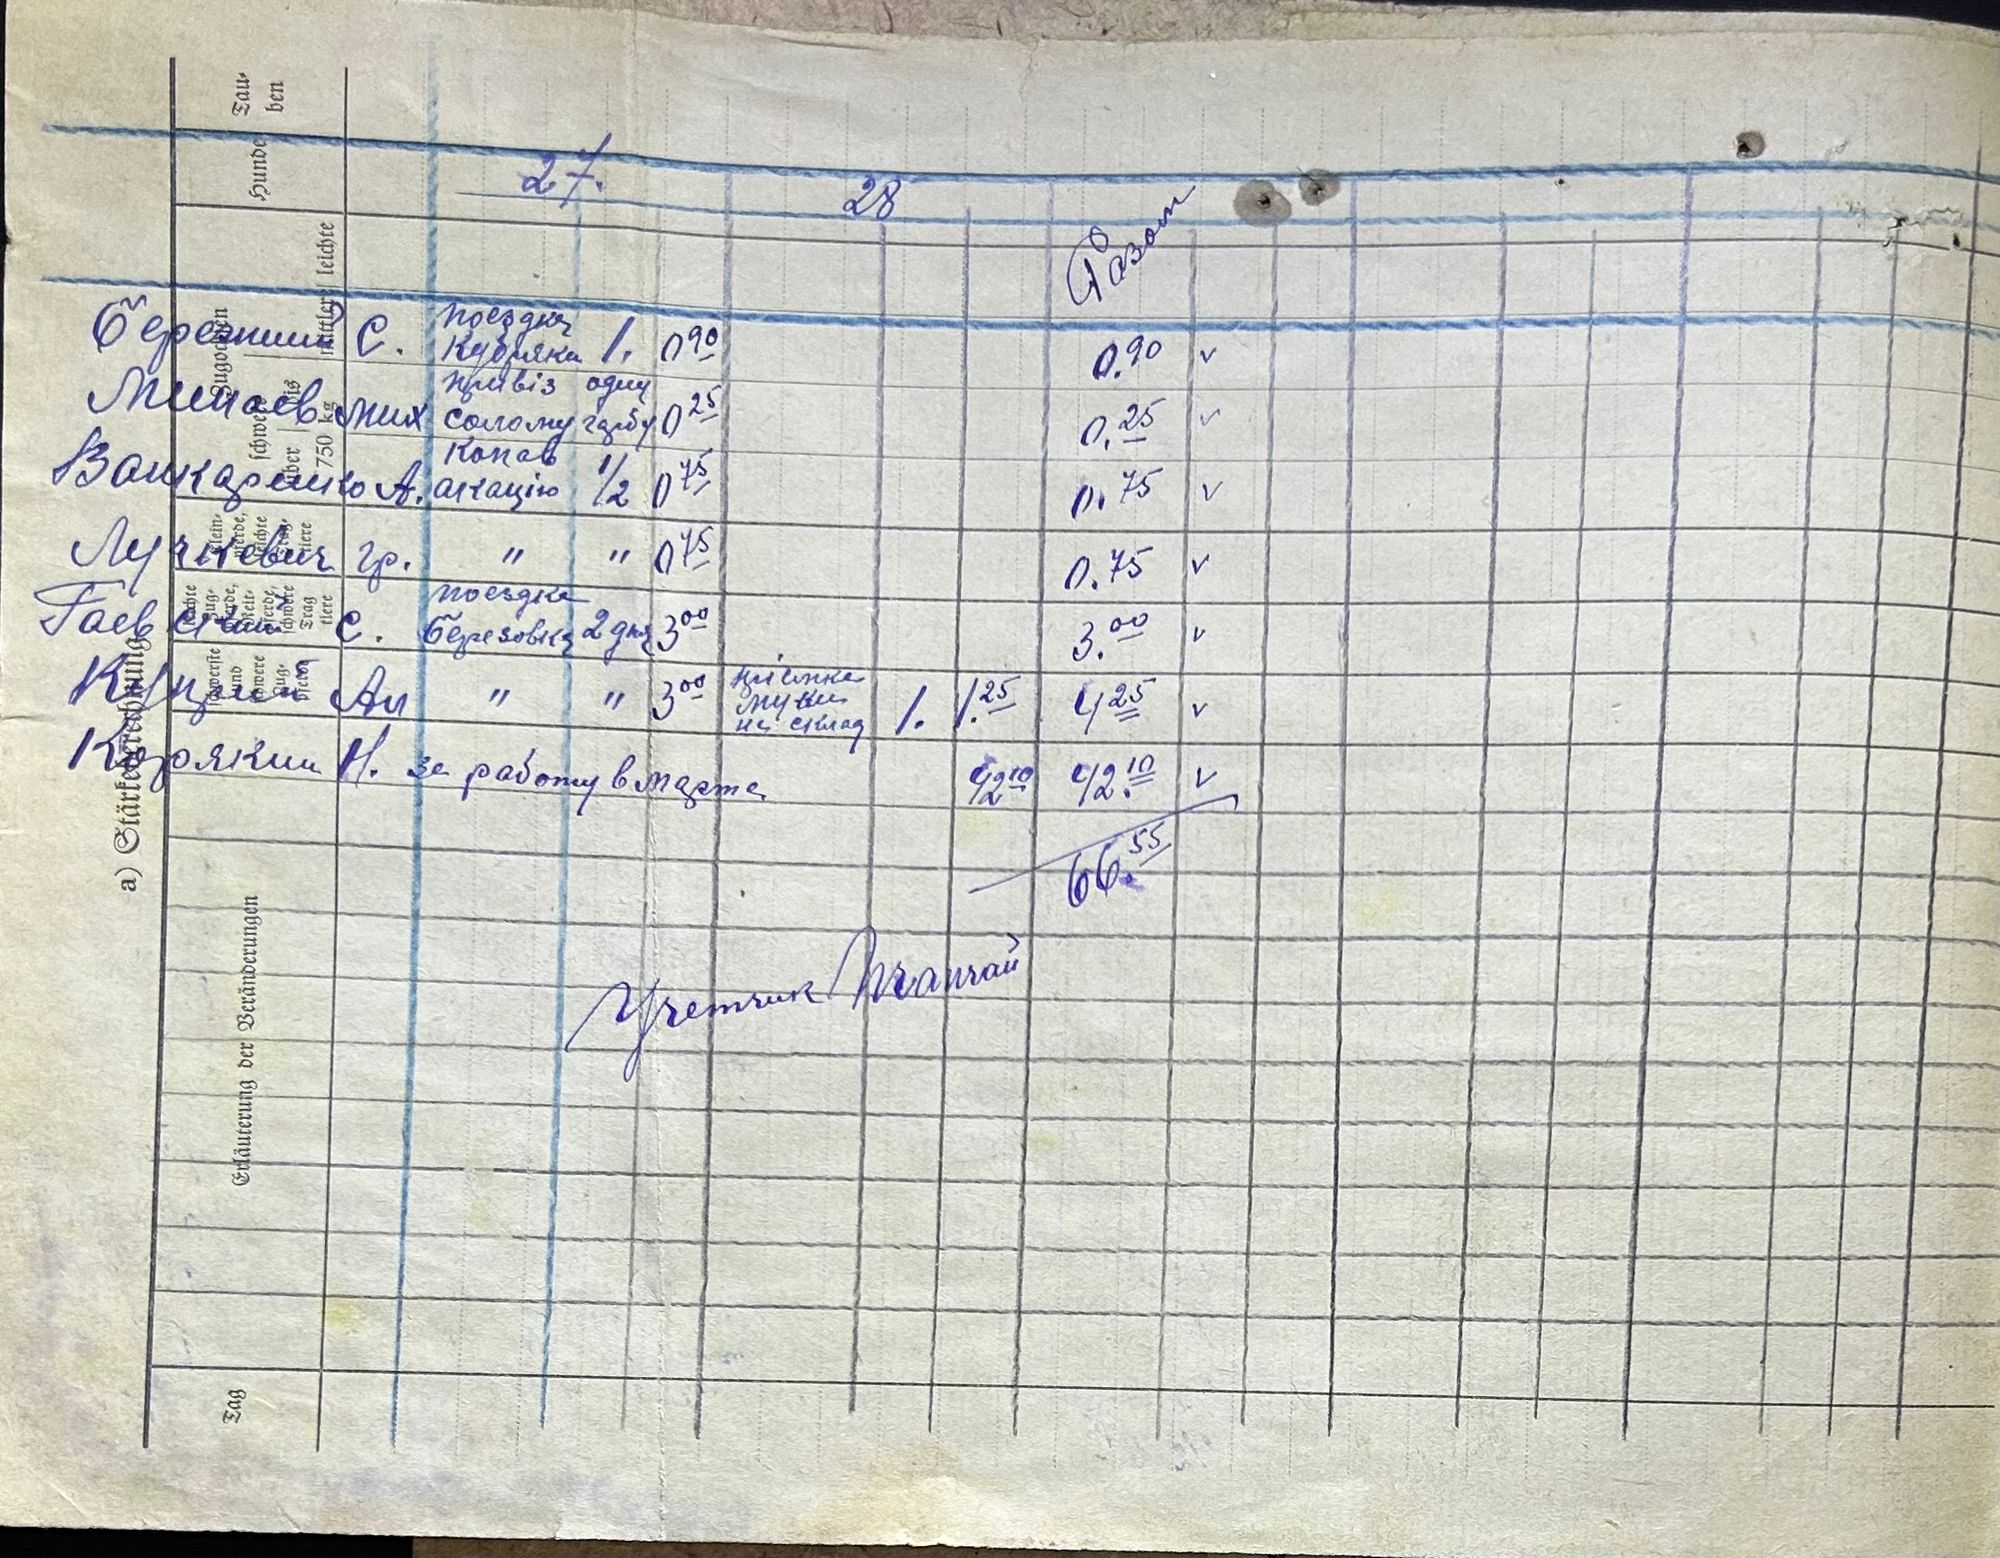 27.
28
Разом
Бережний С. поездка Кубряка 1. 0 90 0.90 v
Минаев Мих привіз солому одну гарбу 0 25 0.25 v
А. Копав акацію 1/2 0 75 0.75 v
Лучкевич гр. " " 0 75 0.75 v
Гаевский С. поездка Березовка 2 дня 3 00 3.00 v
Куцин Ал " " 3 00 муки на склад 1. 1.25 4 25 v
Корякин Н. за работу в марте 42 10 42.10 v
66.55
Учетчик
a) Stärkeberechnung
Tag
Erläuterung der Veränderungen
Zugochsen
schwere über 750 kg
mittlere
leichte
Hunde
Tau-
ben